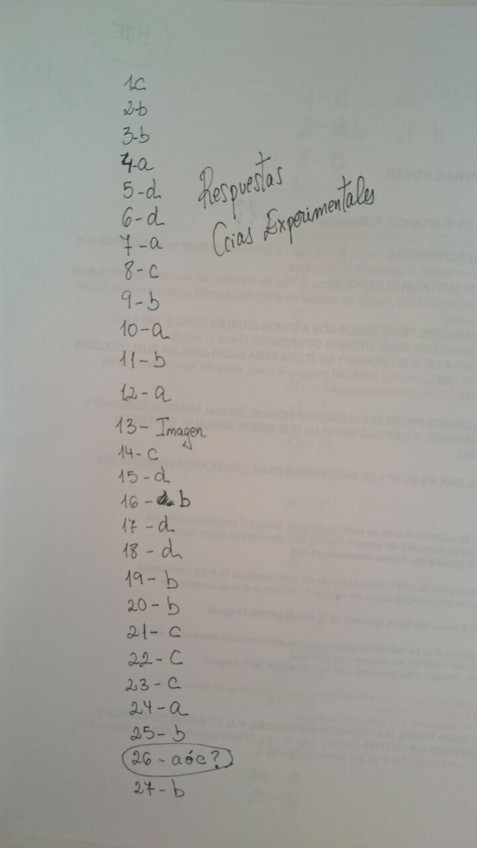 1c
2-b
3-b
4-a
5-d
6-d
7-a
8-c
9-b
10-a
11-b
12-a
13- Imagen
14-c
15-d
16-b
17-d
18-d
19-b
20-b
21-c
22-c
23-c
24-a
25-b
26-a ó c?
27-b
Respuestas
Ccias Experimentales